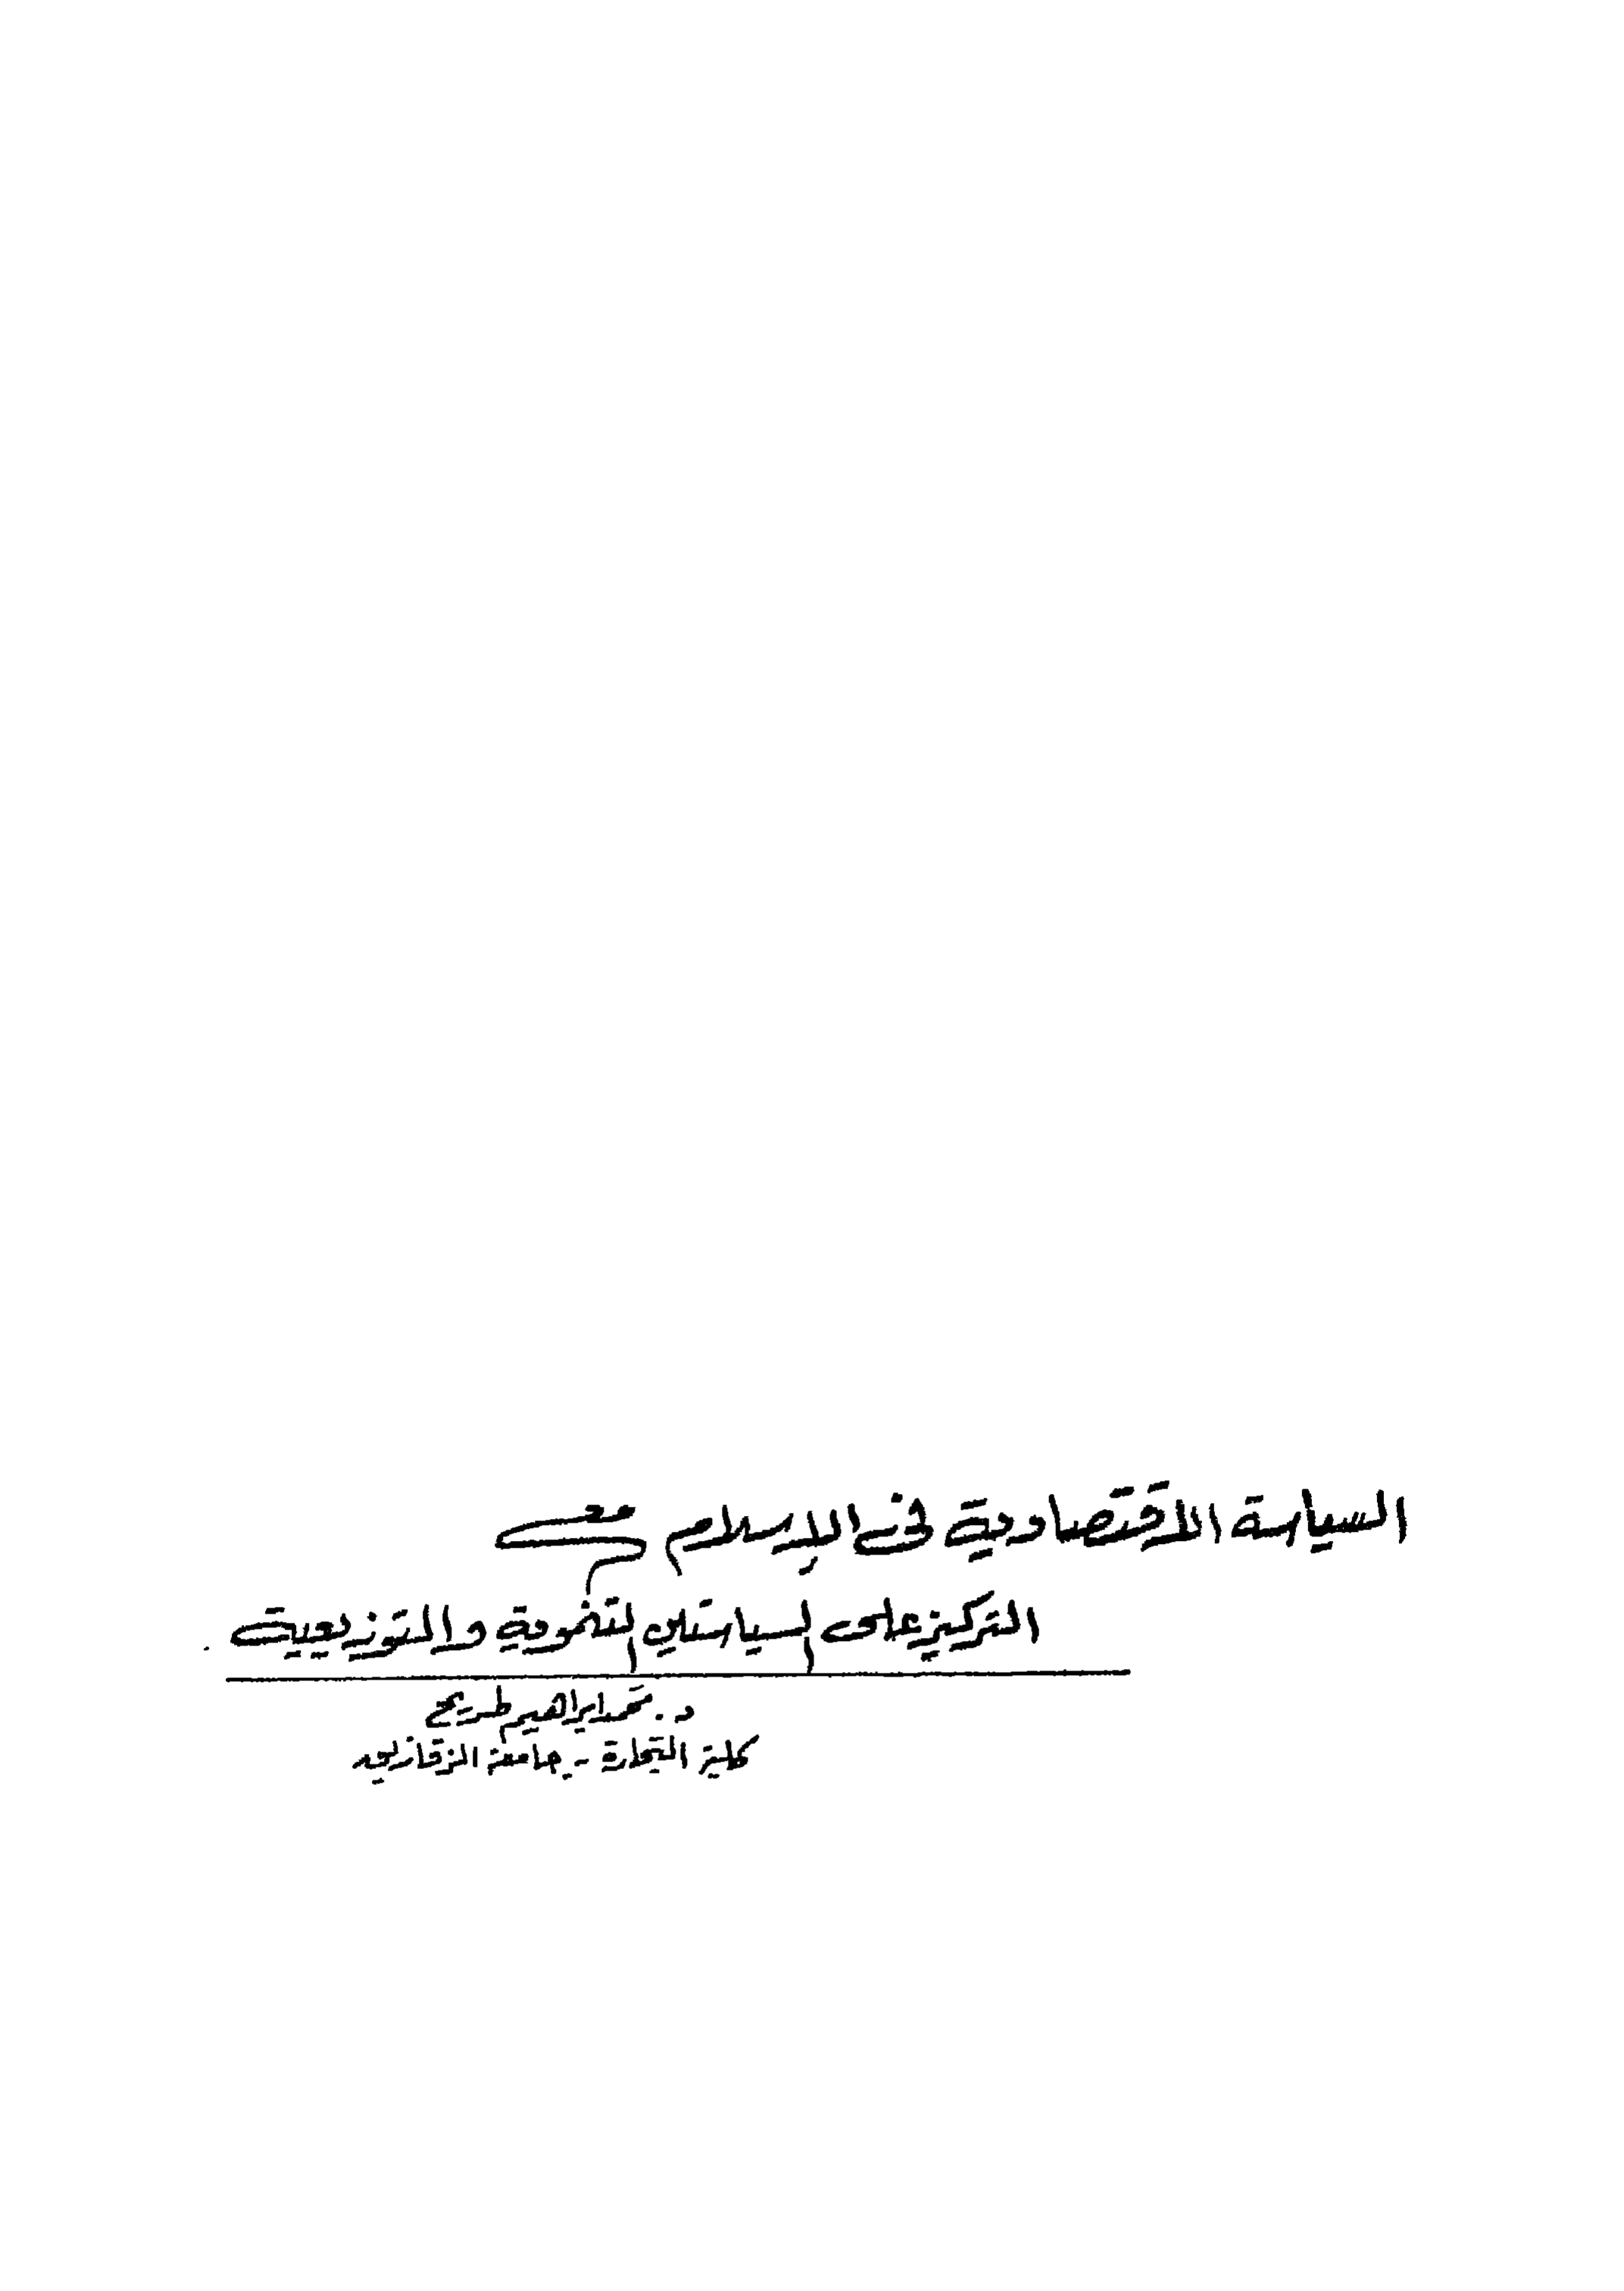 السياسة الاقتصادية فى الإسلام مع
التركيز على السياستين التنموية والتوزيعية.
د. محمد ابراهيم طريح
كلية التجارة - جامعة الزقازيق